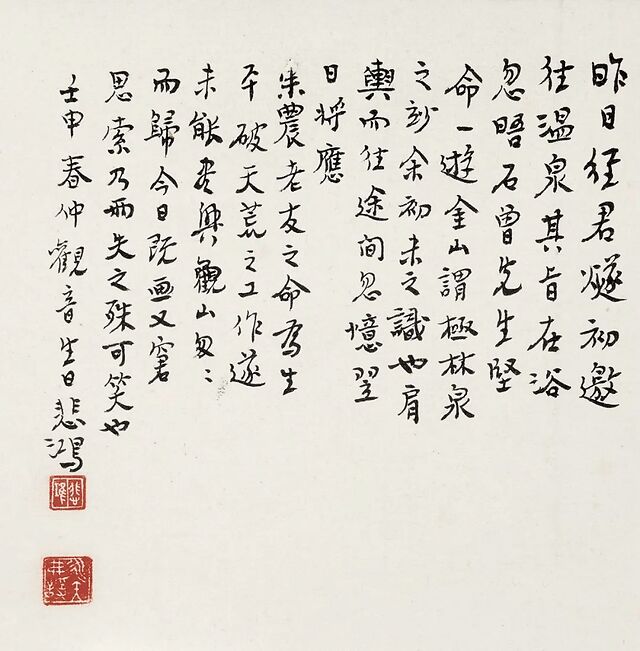 昨日徑君燧初邀
往溫泉其旨在浴
忽晤石曾先生堅
命一遊金山謂極林泉
之妙余初未之識也肩
輿而往途間忽憶翌
日將應
樂農老友之命為生
平破天荒之工作遂
未能尽興觀山匆々
而歸今日既画又窘
思索乃两失之殊可笑也
壬申春仲觀音生日悲鴻